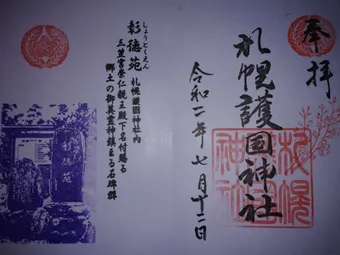 奉拝
札幌護国神社
令和二年七月十二日
しょうとくえん
彰徳苑 札幌護國神社内
三笠宮崇仁親王殿下名付賜る
郷土の御英霊神鎮まる石碑群
彰徳苑